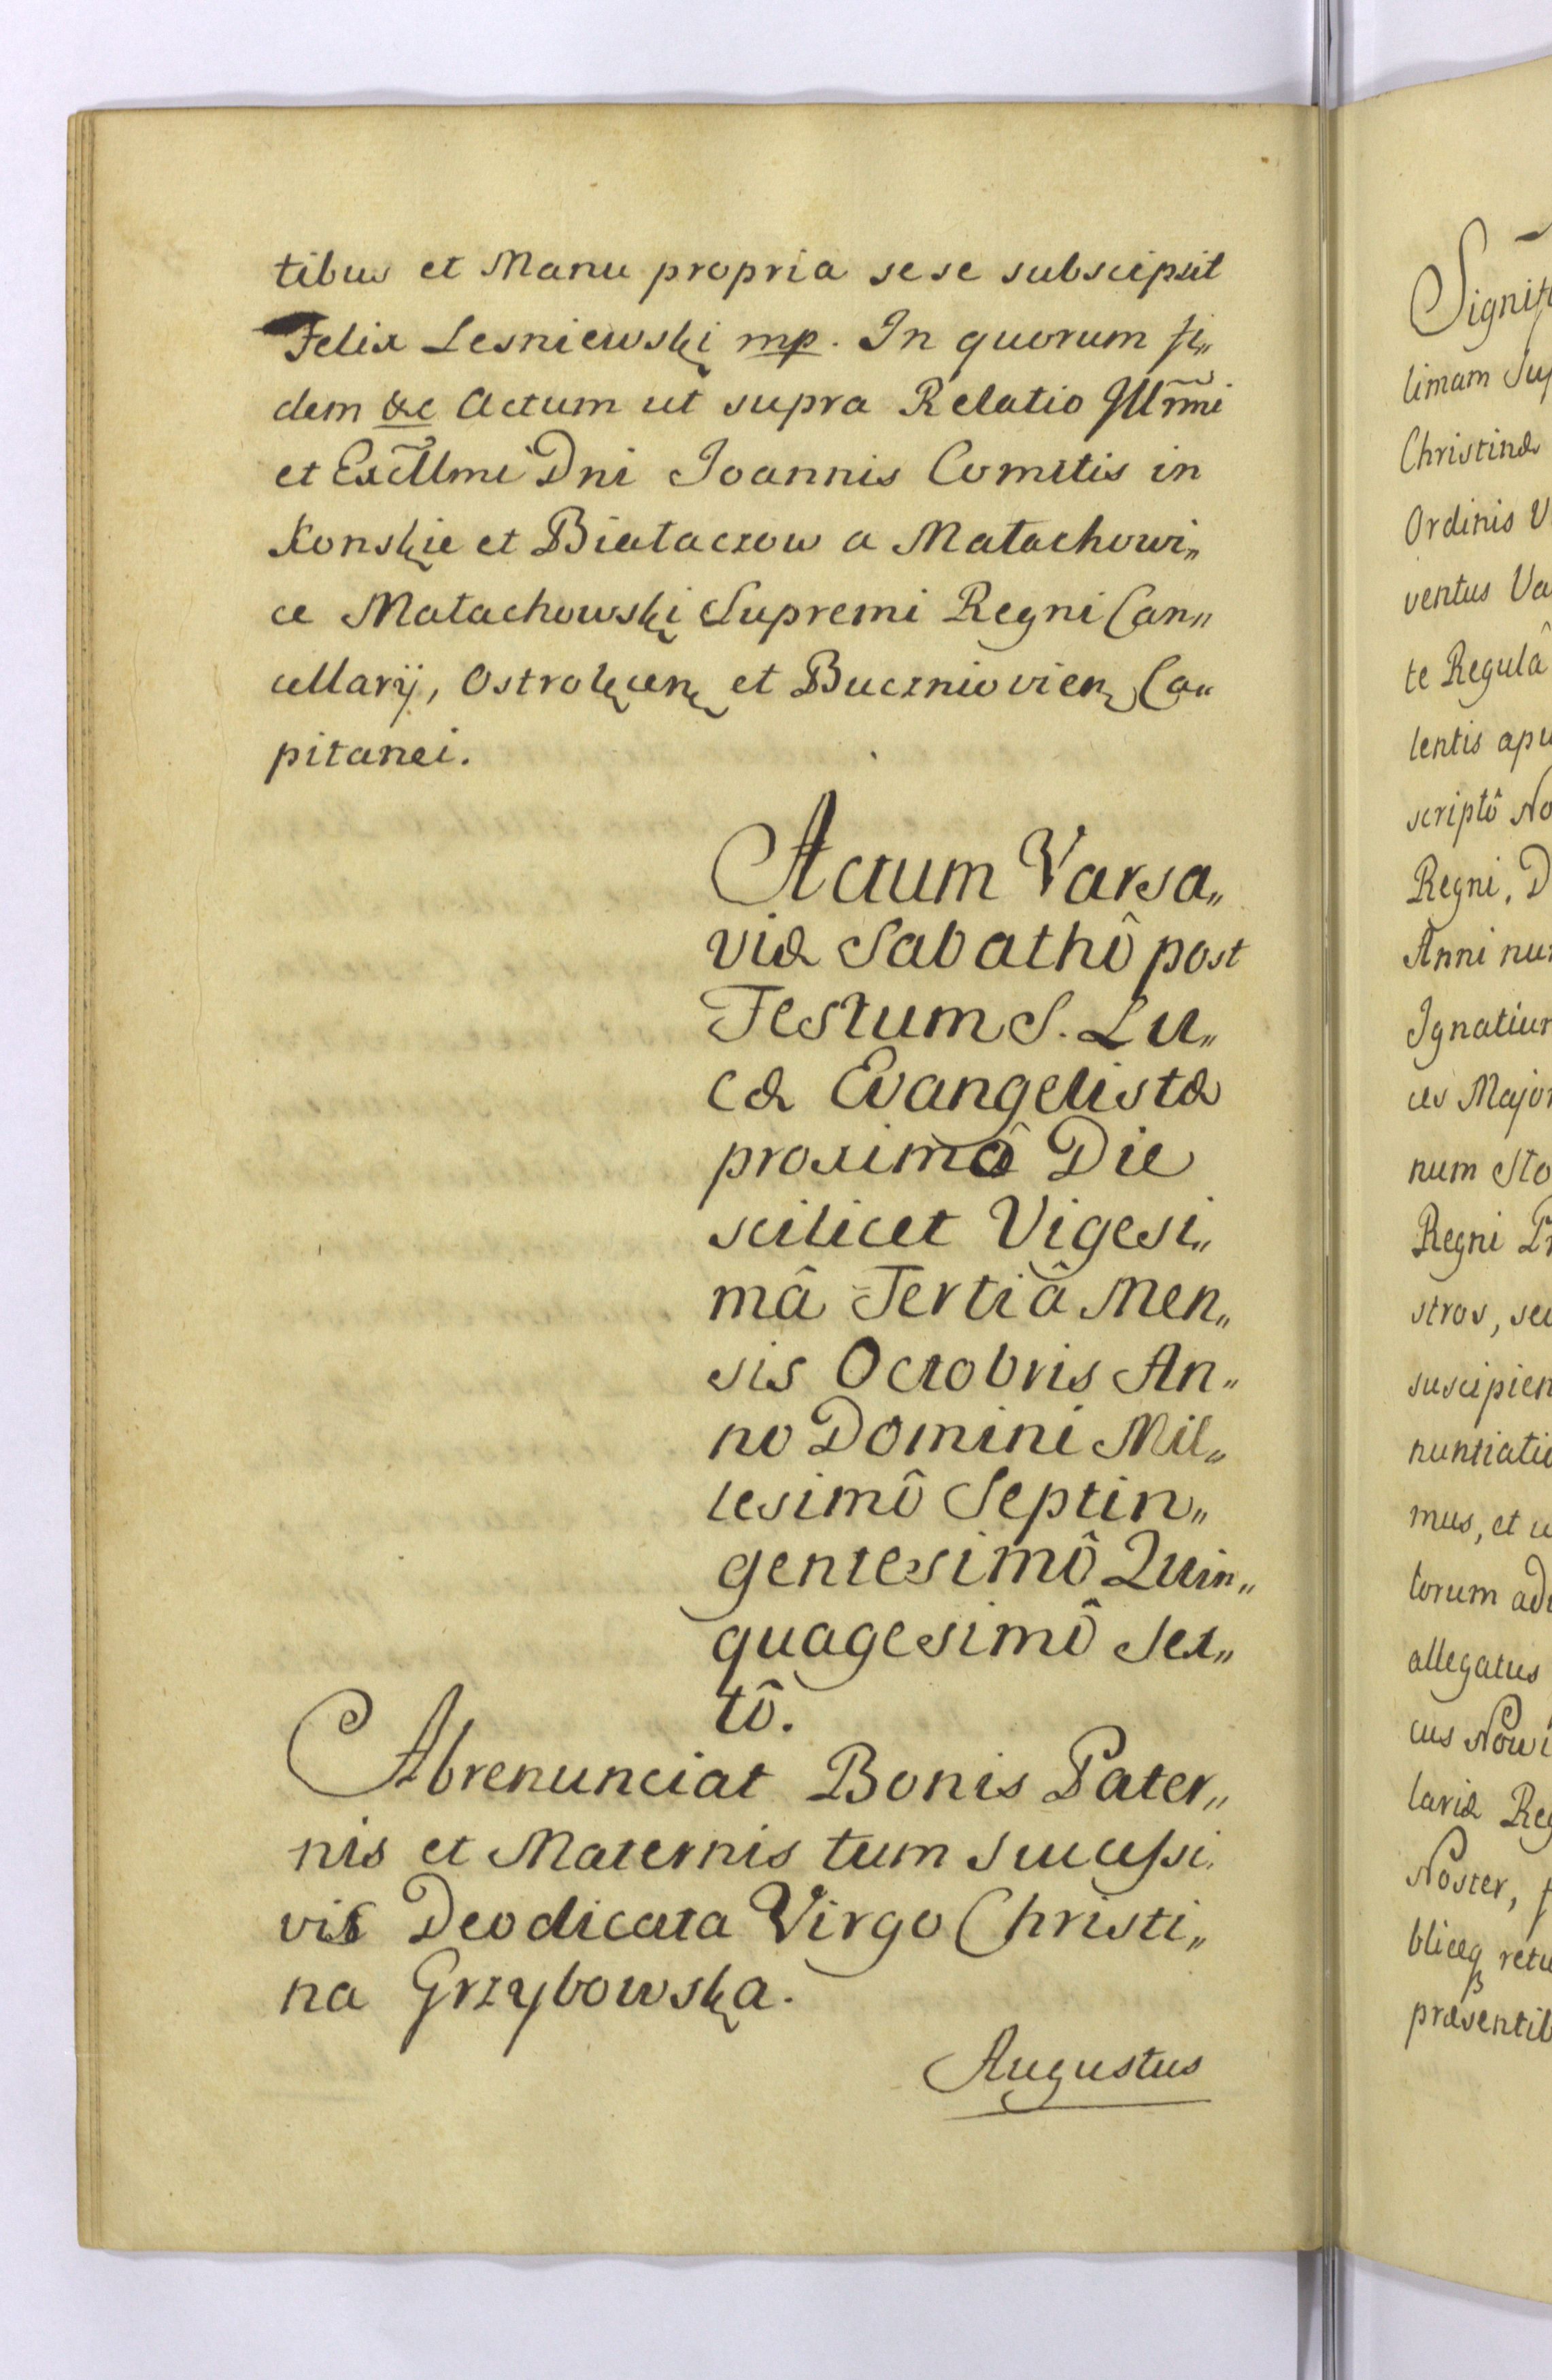 tibus et Manu propria sese subscipsit
Felix Lesniewski mp. In quorum fi„
dem &c Actum ut supra Relatio Illmi
et Excellmi Dni Joannis Comitis in
Konskie et Biataczow a Matachowi„
ce Matachowski Supremi Regni Can„
cellarij, Ostrolecen et Buczniovien Ca„
pitanei.
Actum Varsa„
viæ Sabathô post
Festum S. Lu„
cæ Evangelistæ
proximô Die
scilicet Vigesi„
mâ Tertiâ Men„
sis Octobris An„
no Domini Mil„
lesimô Septin„
gentesimô Quin„
quagesimô Sex„
tô.
Abrenunciat Bonis Pater„
nis et Maternis tum Sucessi„
vis Deodicata Virgo Christi„
na Grzybowska.
Augustus
Signifi
limam Sup
Christinæ
Ordinis V
ventus Va
te Regulâ
lentis apu
scriptô No
Regni, D
Anni nun
Ignatium
ces Major
num Sto
Regni Pr
stros, seu
suscipien
nuntiatio
mus, et u
torum ad
allegatus
cus Nowi
lariæ Reg
Noster, p
bliceq retu
præsentib